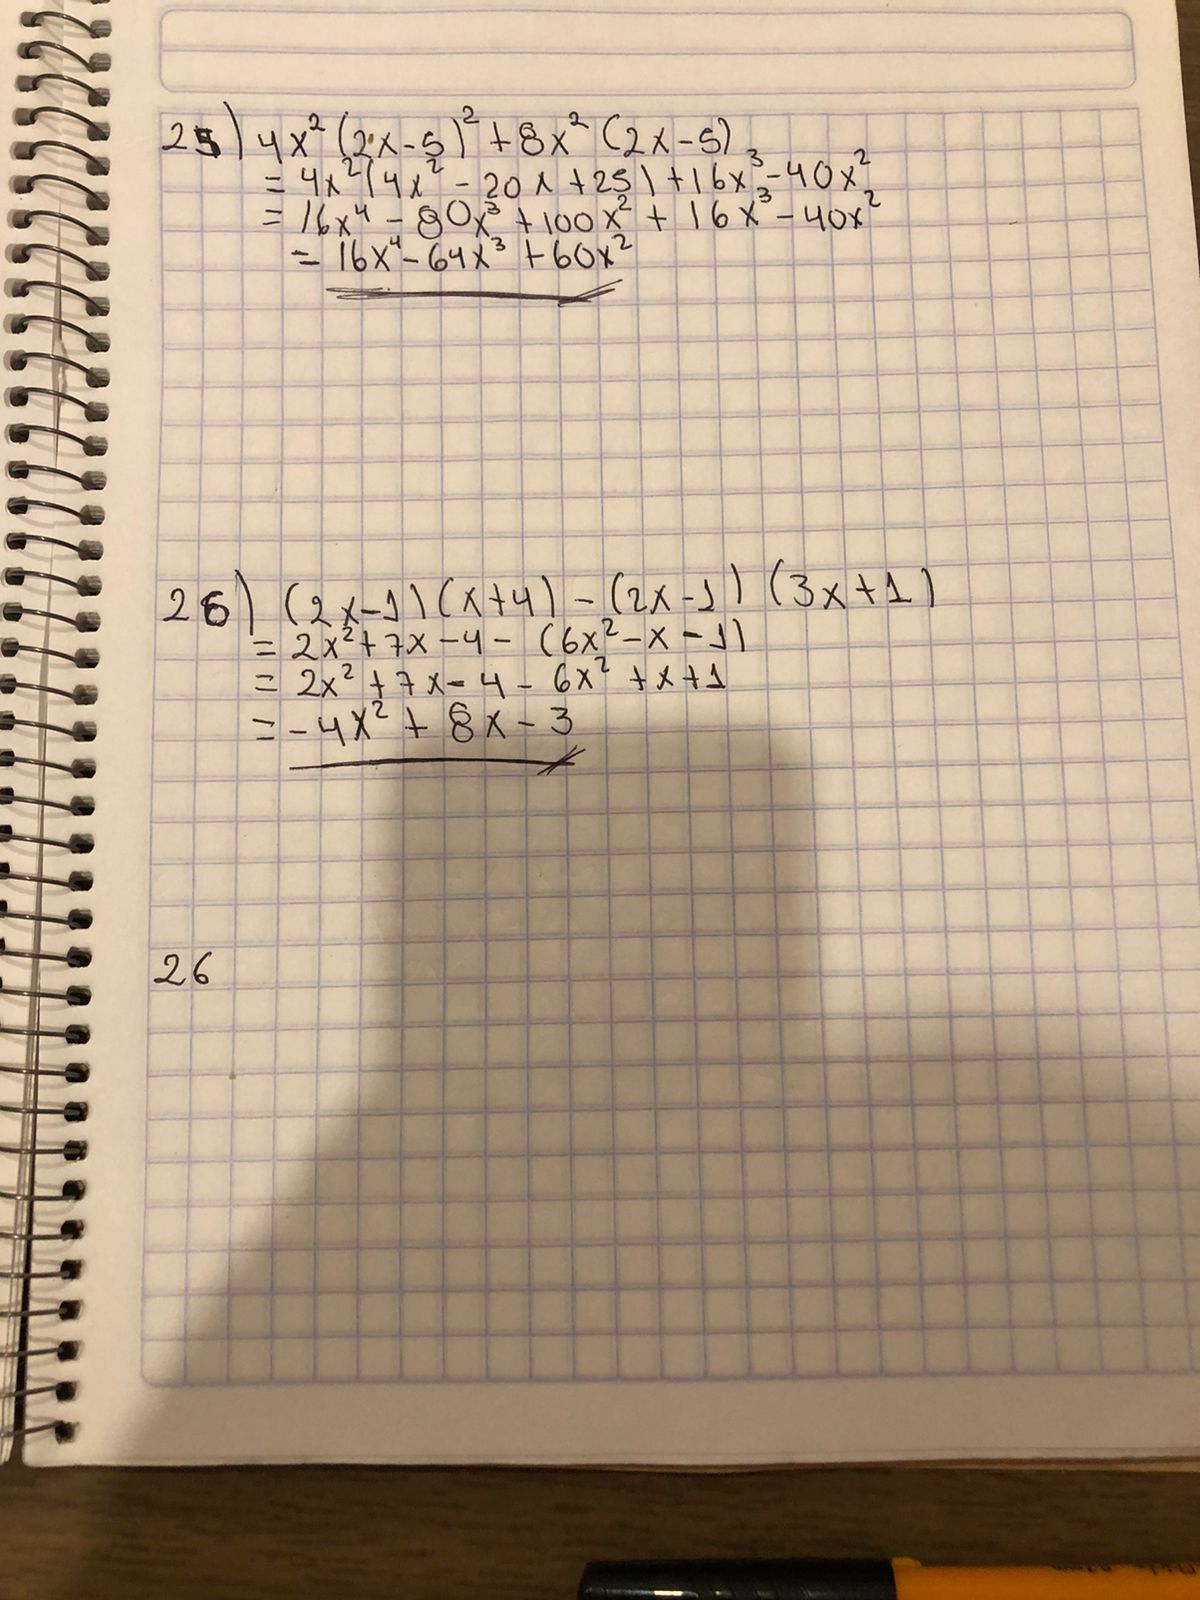 25) 4x² (2x-5)² + 8x² (2x-5)
= 4x² (4x² - 20x + 25) + 16x³ - 40x²
= 16x⁴ - 80x³ + 100x² + 16x³ - 40x²
= 16x⁴ - 64x³ + 60x²
26) (2x-1) (x+4) - (2x-1) (3x+1)
= 2x² + 7x - 4 - (6x² - x - 1)
= 2x² + 7x - 4 - 6x² + x + 1
= -4x² + 8x - 3
26